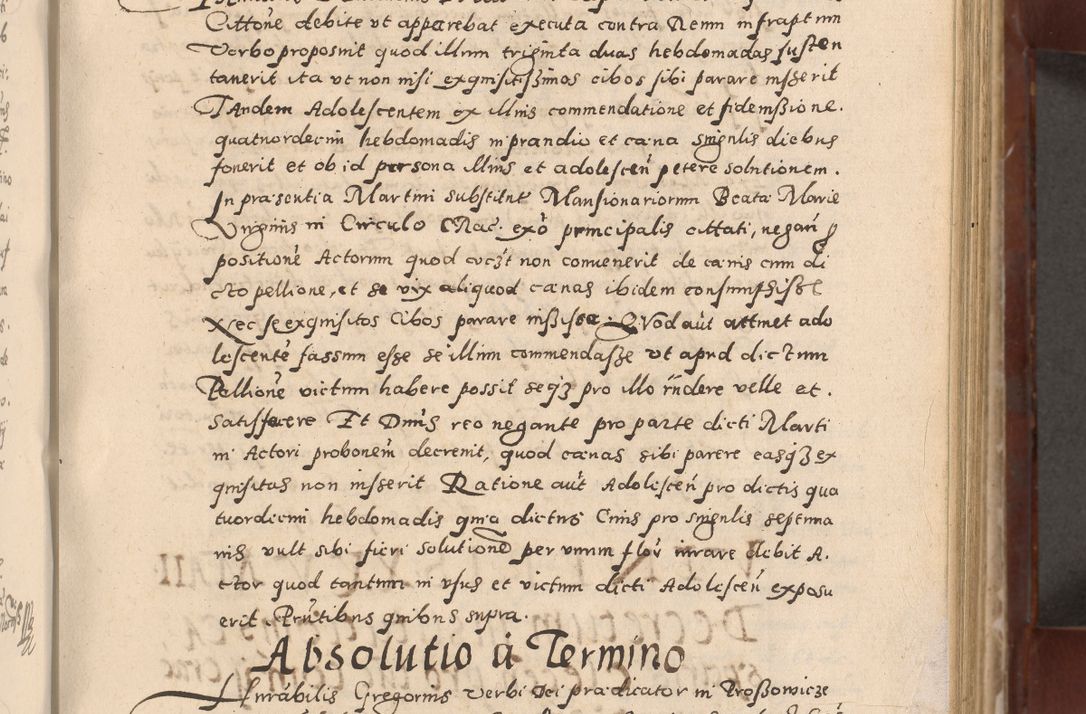 Cittone debite ut apparebat executa contra Reum infrascriptum
Verbo proposuit quod illum triginta duas hebdomadas susten
tauerit ita ut non nisi exquisitissimos cibos sibi parare iusserit
Tandem Adolescentem ex illius commendatione et fideiussione.
quatuordecim hebdomadis in prandio et caena singulis diebus
fouerit et ob id persona illius et adolescen petere solutionem.
In praesentia Martini substitut Mansionariorum Beatae Mariae
Virginis in Circulo Crac. exo principalis cittati, negan p
positione Actorum quod non conuenerit de caenis cum di
cto pellione, et se vix aliquod caenas ibidem consumpsisse
Nec se exquisitos Cibos parare iussisse. Quod aut attinet ado
lescente fassum esse se illum commendasse ut apud dictum
Pellione victum habere possit seqz pro illo rndere velle et.
Satisfacere Et Dnus reo negante pro parte dicti Marti
ni Actori probonem decreuit, quod caenas sibi parere easqz ex
quisitas non iusserit Ratione aut Adolescen pro dictis qua
tuordicim hebdomadis quia dictus Ciuis pro singulis septima
nis vult sibi fieri solutione per unum flor iurare debit A.
ctor quod tantum in usus et victum dicti Adolescen exposu
erit Prntibus quibus supra.
Absolutio á Termino
Hnrabilis Gregorius Verbi Dei praedicator in Proszowicze